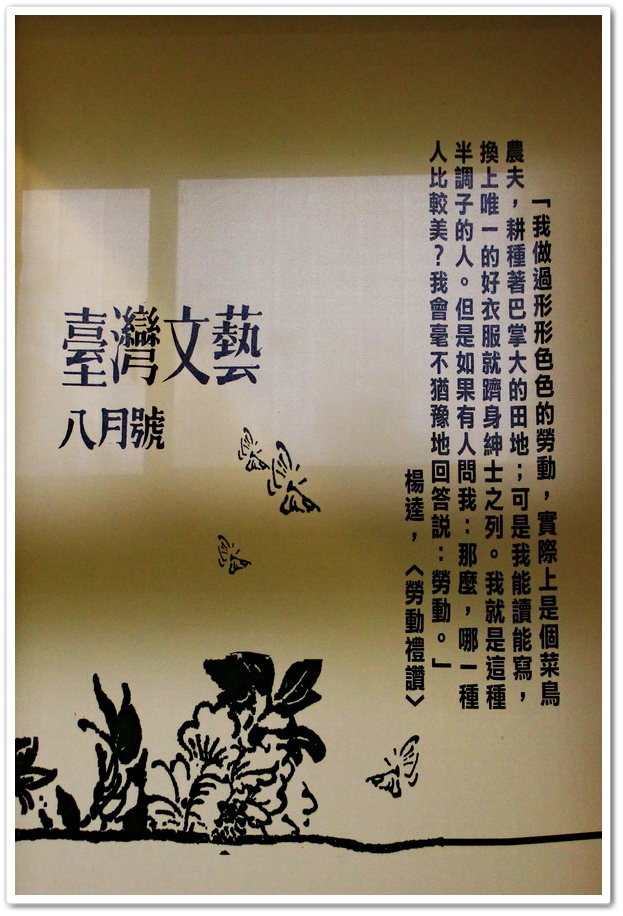 「我做過形形色色的勞動，實際上是個菜鳥
農夫，耕種著巴掌大的田地；可是我能讀能寫，
換上唯一的好衣服就躋身紳士之列。我就是這種
半調子的人。但是如果有人問我：那麼，哪一種
人比較美？我會毫不猶豫地回答說：勞動。」
楊逵，〈勞動禮讚〉
臺灣文藝
八月號